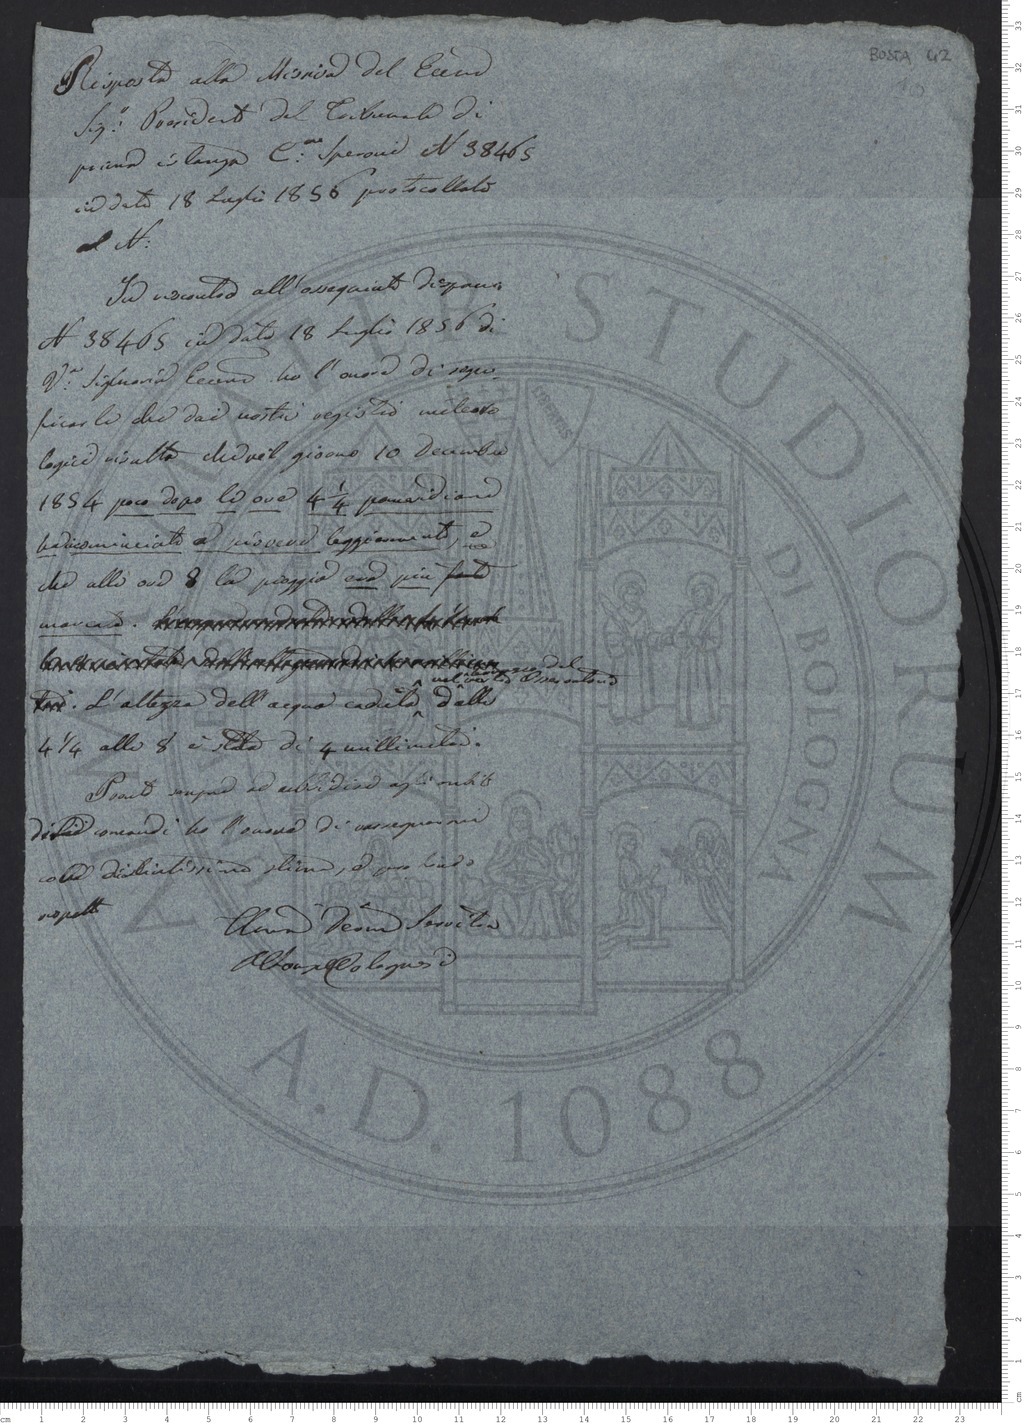 BUSTA 42
Risposta alla Missiva del Eccmo
Sig.r Presidente del Tribunale di
prima istanza C.te Speroni N 38465
in data 18 Luglio 1856 protocollato
al N:
In riscontro all'ossequiato dispaccio
N 38465 in data 18 Luglio 1856 di
V.a Signoria Eccma ho l'onore di signi
ficarle che dai nostri registri meteoro
logici risulta che nel giorno 10 Decembre
1854 poco dopo le ore 4 1/4 pomeridiane
ha cominciato a piovere leggiermente, e
che alle ore 8 la pioggia era più forte
marcata.
nel del Osservatorio
L'altezza dell'acqua caduta dalle
4 1/4 alle 8 è stata di 4 millimetri.
Pronto sempre ad ubbidire agli
di Lei comandi ho l'onore di rassegnarmi
con distintissima stima, e profondo
rispetto
Umo Devmo Servitore
ALMA MATER STUDIORUM
UNIVERSITÀ DI BOLOGNA
A.D. 1088